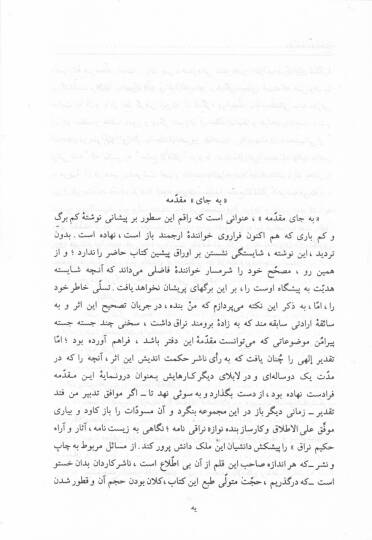 « به جای » مقدّمه
« به جای مقدّمه » ، عنوانی است که راقم این سطور بر پیشانی نوشتهٔ کم برگ
و کم باری که هم اکنون فراروی خوانندهٔ ارجمند باز است، نهاده است. بدون
تردید ، این نوشته ، شایستگی نشستن بر اوراق پیشین کتاب حاضر را ندارد ؛ و از
همین رو ، مصحّح خود را شرمسار خوانندهٔ فاضلی می‌داند که آنچه شایسته
هدیّت به پیشگاه اوست را ، بر این برگهای پریشان نخواهد یافت. تسلّی خاطر خود
را، امّا، به ذکر این نکته می‌پردازم که من بنده ، در جریان تصحیح این اثر و به
سائقهٔ ارادتی سابقه مند که به زادهٔ برومند نراق داشت ، سخنی چند جسته جسته
پیرامُن موضوعاتی که می‌توانست مقدّمهٔ این دفتر باشد ، فراهم آورده بود ؛ امّا
تقدیر الهی را چُنان یافت که به رأی ناشر حکمت اندیش این اثر ، آنچه را که در
مدّت یک دوساله‌ای و در لابلای دیگر کارهایش بعنوان درونمایهٔ ایـن مـقدمه
فرادست نهاده بود ، از دست بگذارد و به سوئی نهد تا ــ اگر موافق تدبیر من فتد
تقدیر ــ زمانی دیگر باز در این مجموعه بنگرد و آن مسودّات را باز کاود و بیاری
موفّق علی الاطلاق و کارساز بنده نوازه نراقی نامه ؛ نگاهی به زیست نامه ، آثار و آراء
حکیم نراق » را پیشکش دانشیان این ملک دانش پرور کند . از مسائل مربوط به چاپ
و نشر ــ که هر اندازه صاحب این قلم از آن بی اطّلاع است ، ناشر کاردان بدان خستو
است ــ که درگذریم ، حجّت متولّی طبع این کتاب، کلان بودن حجم آن و قطور شدن
یه